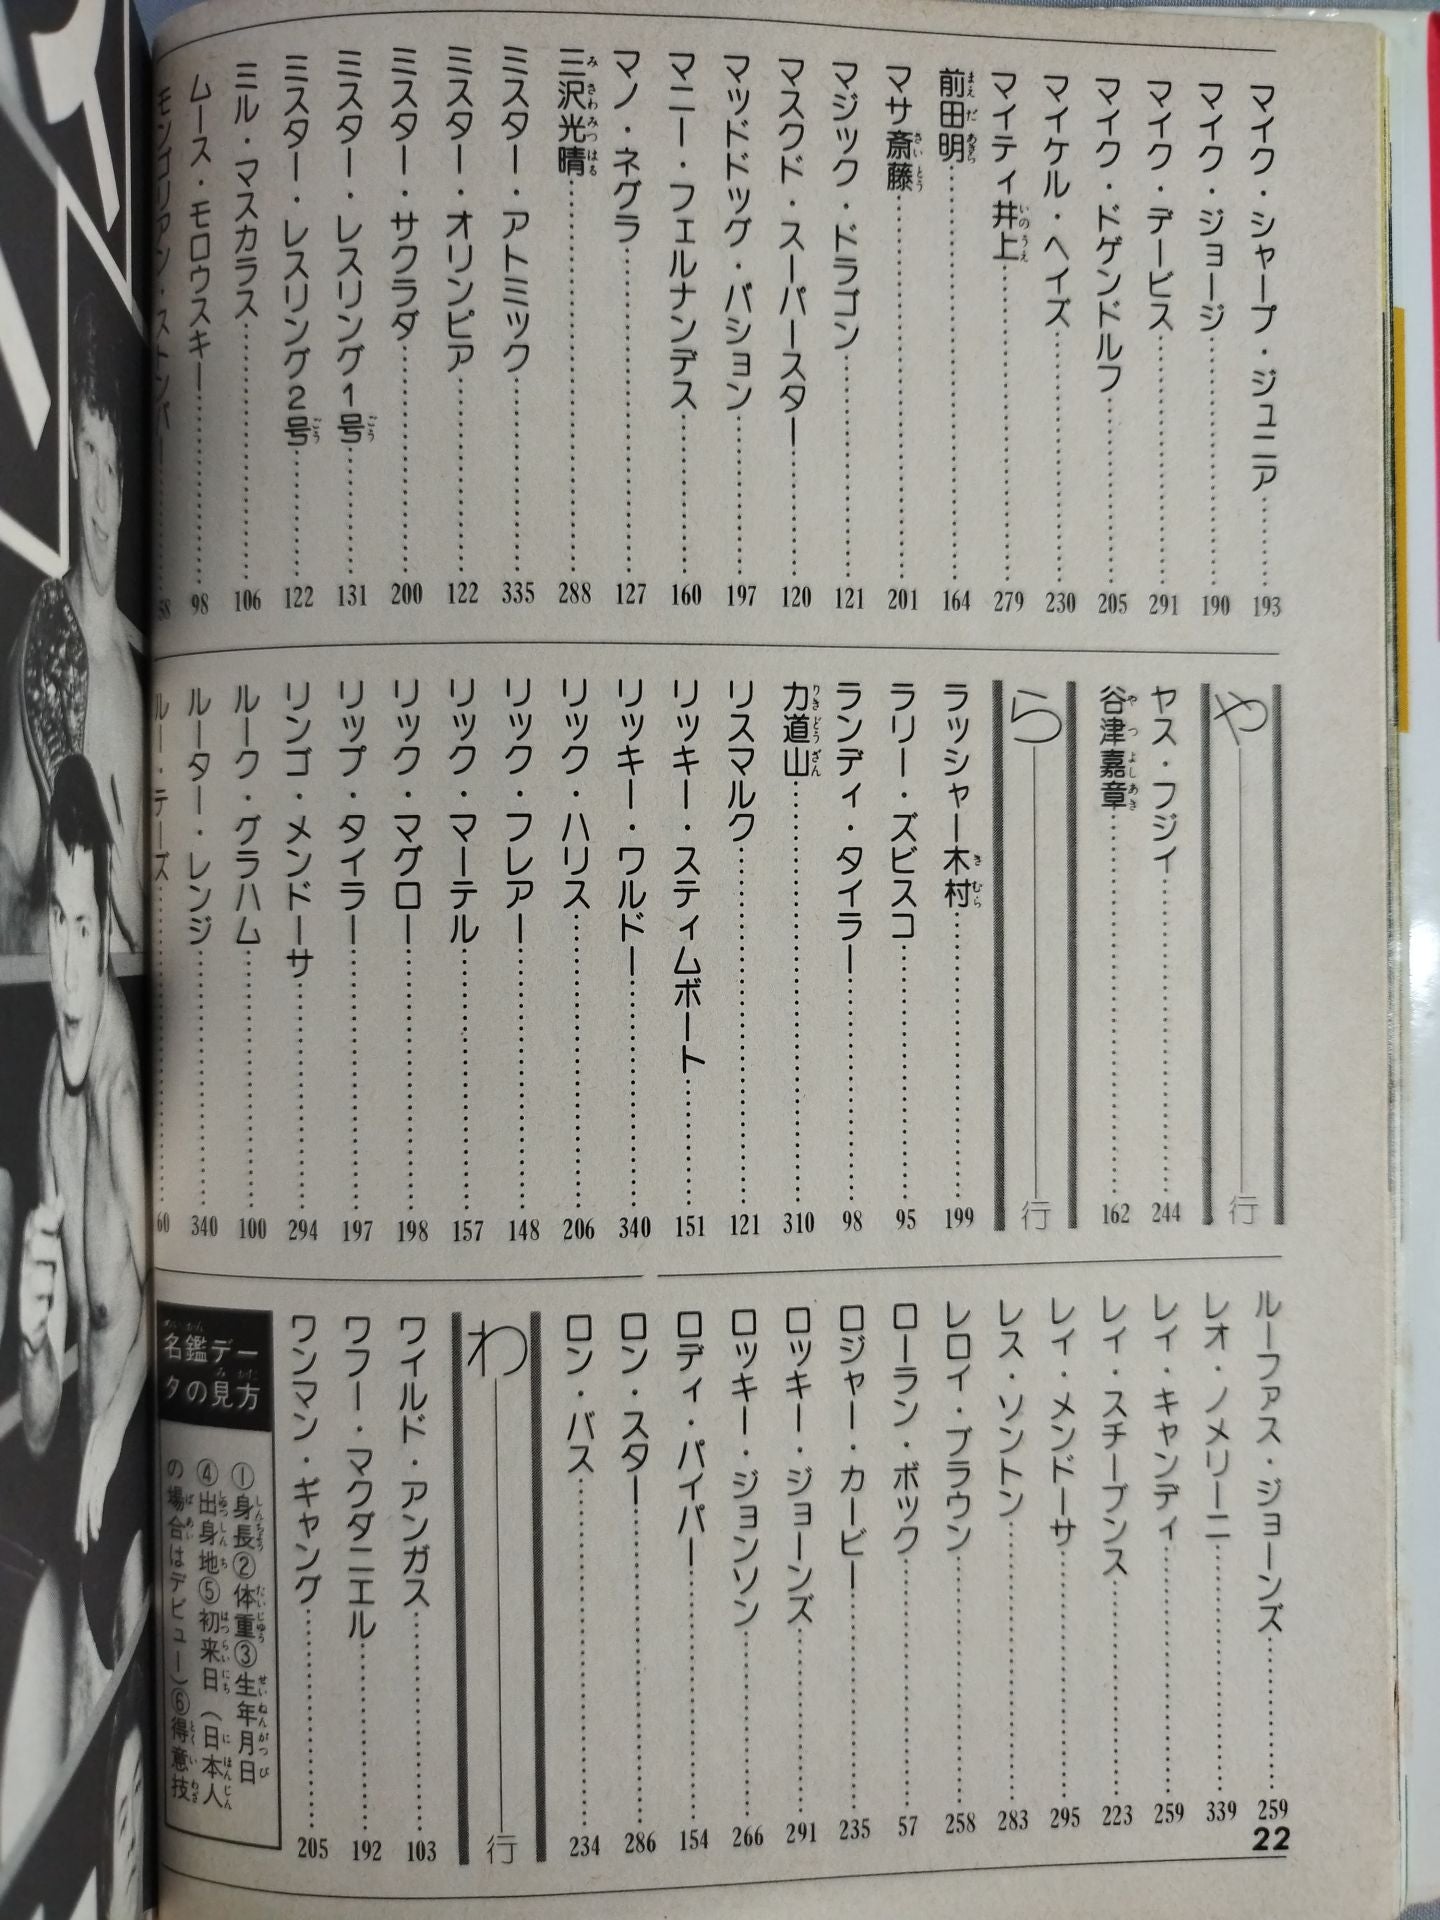 マイク・シャープ・ジュニア……193
マイク・ジョージ……190
マイク・デービス……291
マイク・ドゲンドルフ……205
マイケル・ヘイズ……230
マイティ井上……279
前田明……164
マサ斎藤……201
マジック・ドラゴン……121
マスクド・スーパースター……120
マッドドッグ・バション……197
マニー・フェルナンデス……160
マノ・ネグラ……127
三沢光晴……288
ミスター・アトミック……335
ミスター・オリンピア……122
ミスター・サクラダ……200
ミスター・レスリング1号……131
ミスター・レスリング2号……122
ミル・マスカラス……106
ムース・モロウスキー……98
モンゴリアン・ストンパー……
や行
ヤス・フジイ……244
谷津嘉章……162
ら行
ラッシャー木村……199
ラリー・ズビスコ……95
ランディ・タイラー……98
力道山……310
リスマルク……121
リッキー・スティムボート……151
リッキー・ワルドー……340
リック・ハリス……206
リック・フレアー……148
リック・マーテル……157
リック・マグロー……198
リップ・タイラー……197
リンゴ・メンドーサ……294
ルーク・グラハム……100
ルーター・レンジ……340
ルー・テーズ……60
ルーファス・ジョーンズ……259
レオ・ノメリーニ……339
レイ・キャンディ……259
レイ・スチーブンス……223
レイ・メンドーサ……295
レス・ソントン……283
レロイ・ブラウン……258
ローラン・ボック……57
ロジャー・カービー……235
ロッキー・ジョーンズ……291
ロッキー・ジョンソン……266
ロディ・パイパー……154
ロン・スター……286
ロン・バス……234
わ行
ワイルド・アンガス……103
ワフー・マクダニエル……192
ワンマン・ギャング……205
名鑑デー
タの見方
①身長②体重③生年月日
④出身地⑤初来日(日本人
の場合はデビュー)⑥得意技
22